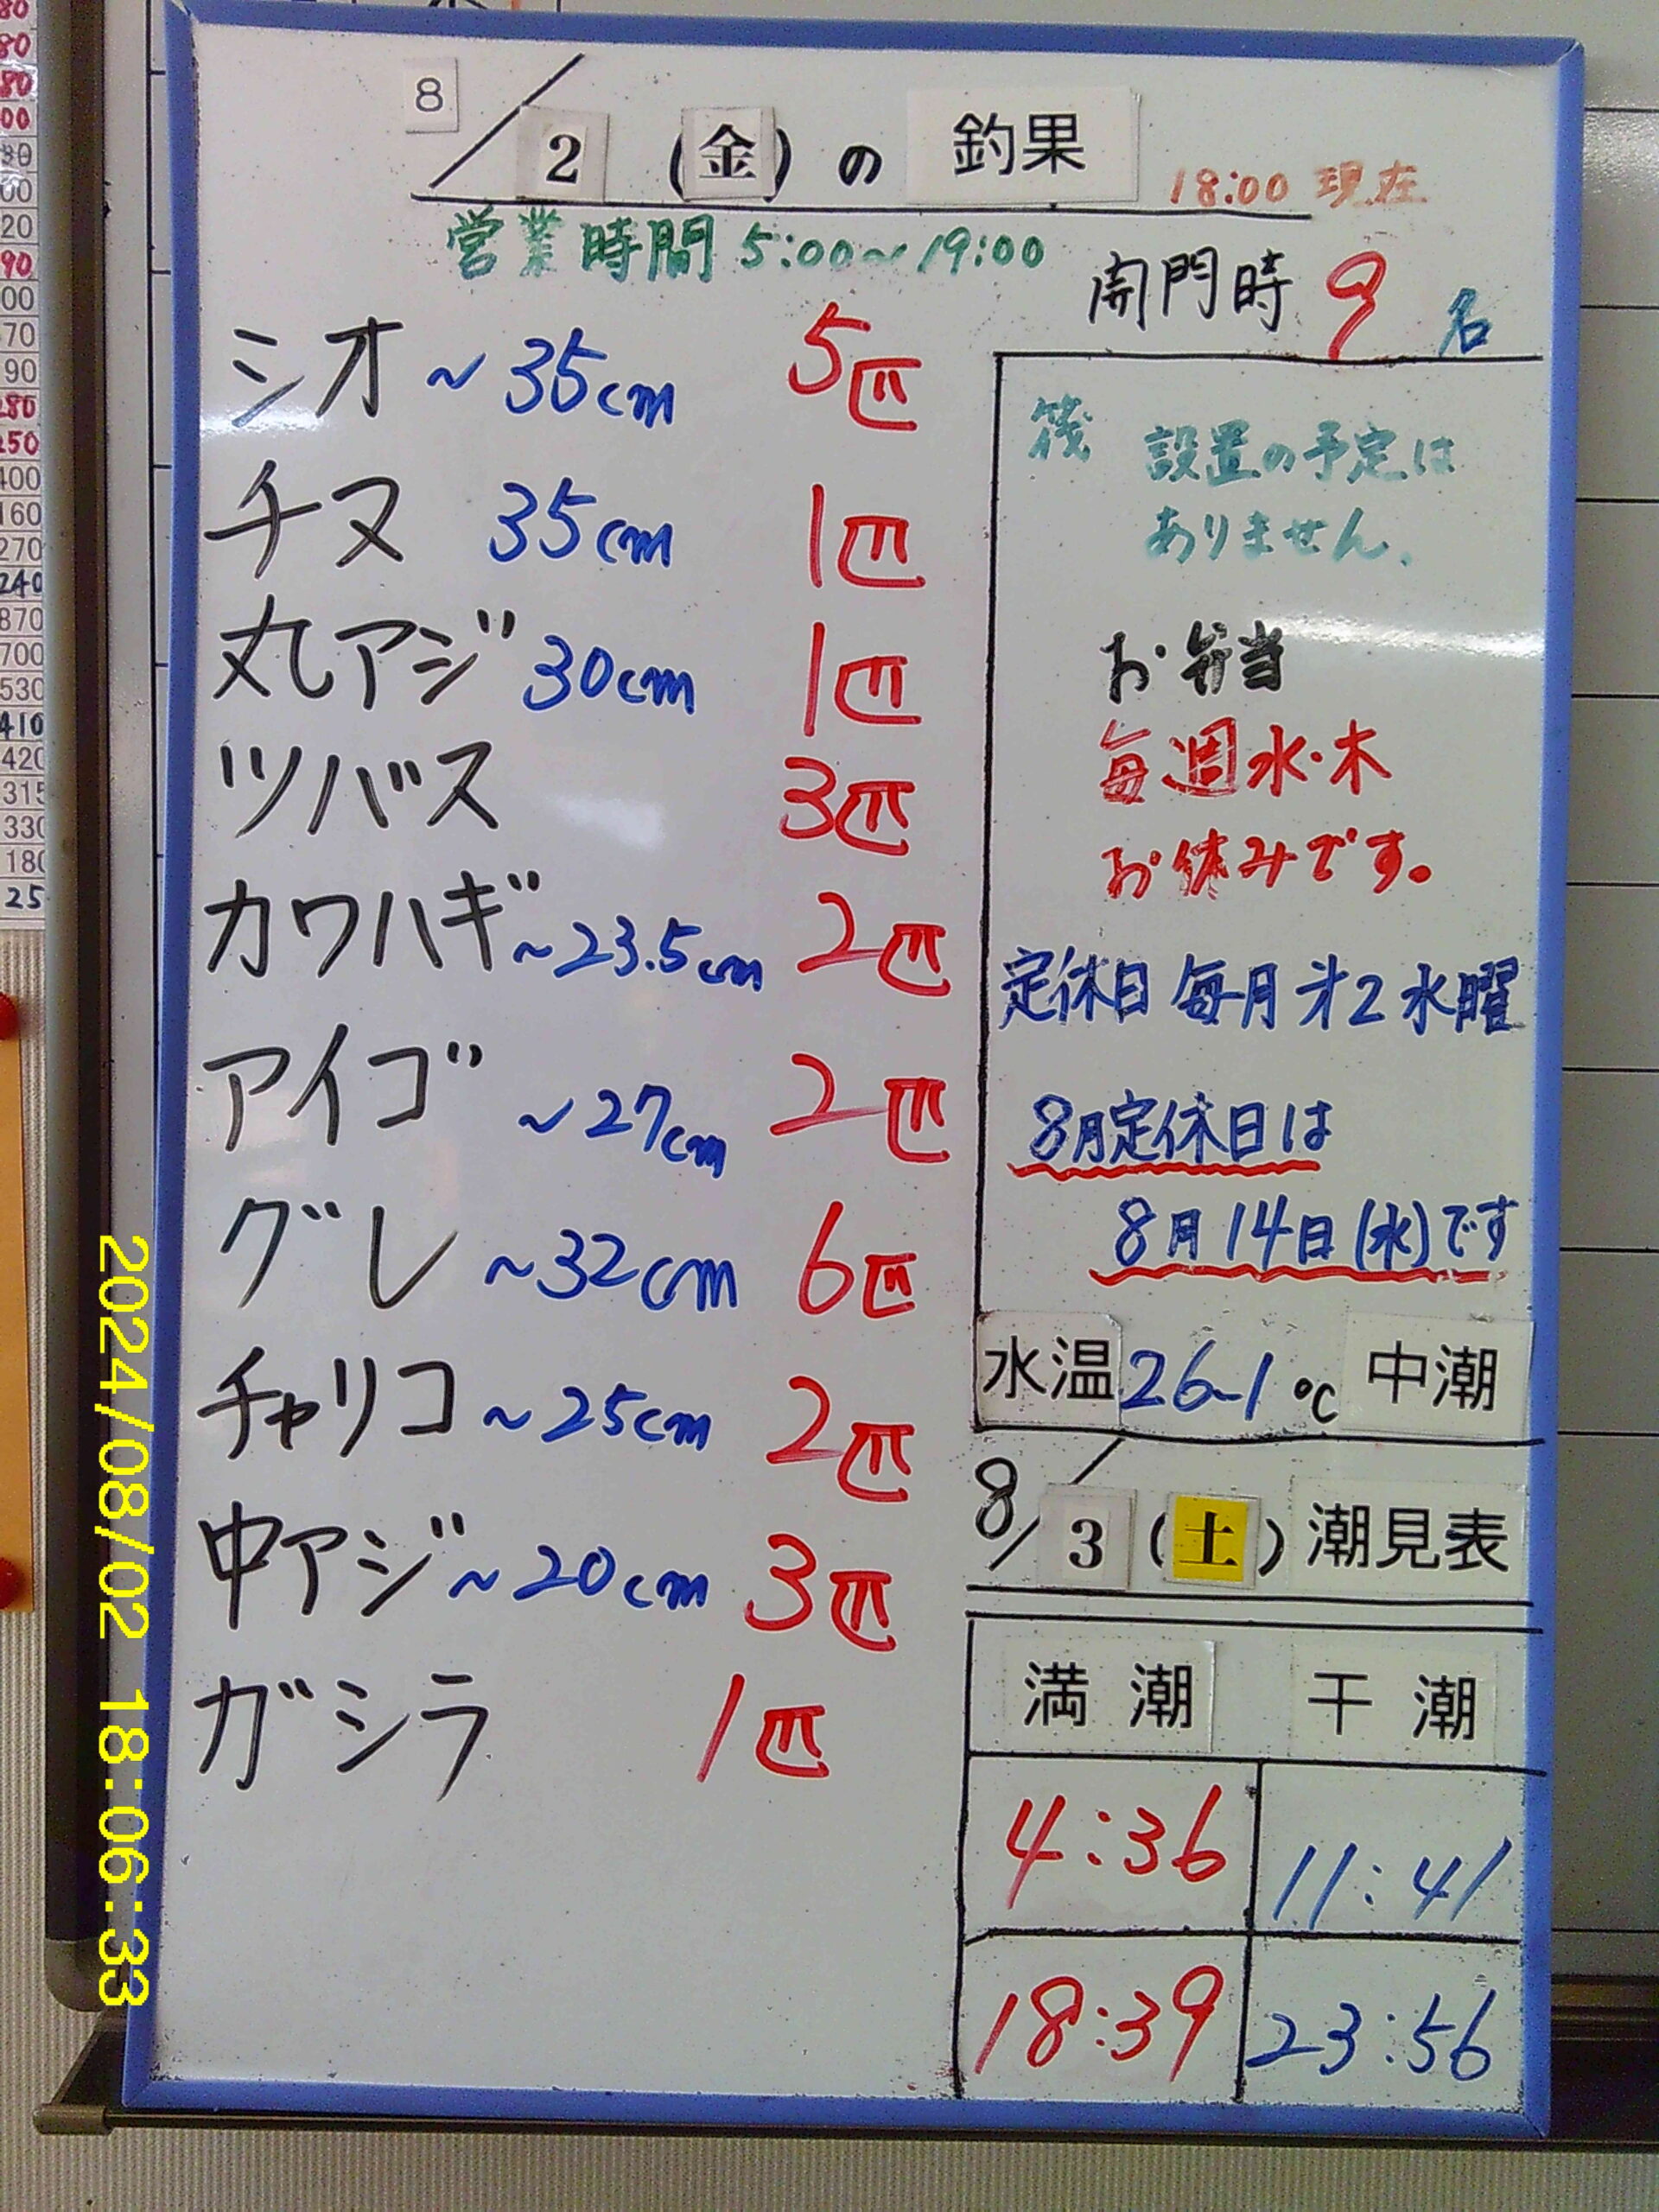 8/2(金)の釣果 18:00 現在
営業時間 5:00~19:00
開門時 9名
シオ ~35cm 5匹
チヌ 35cm 1匹
丸アジ 30cm 1匹
ツバス 3匹
カワハギ ~23.5cm 2匹
アイゴ ~27cm 2匹
グレ ~32cm 6匹
チャリコ ~25cm 2匹
中アジ ~20cm 3匹
ガシラ 1匹
筏 設置の予定は
ありません.
お弁当
毎週水・木
お休みです。
定休日 毎月才2水曜
8月定休日は
8月14日(水)です
水温 26~1℃ 中潮
8/3(土)潮見表
満潮 干潮
4:36 11:41
18:39 23:56
2024/08/02 18:06:33
280
250
400
160
270
240
870
700
530
410
420
315
330
180
25